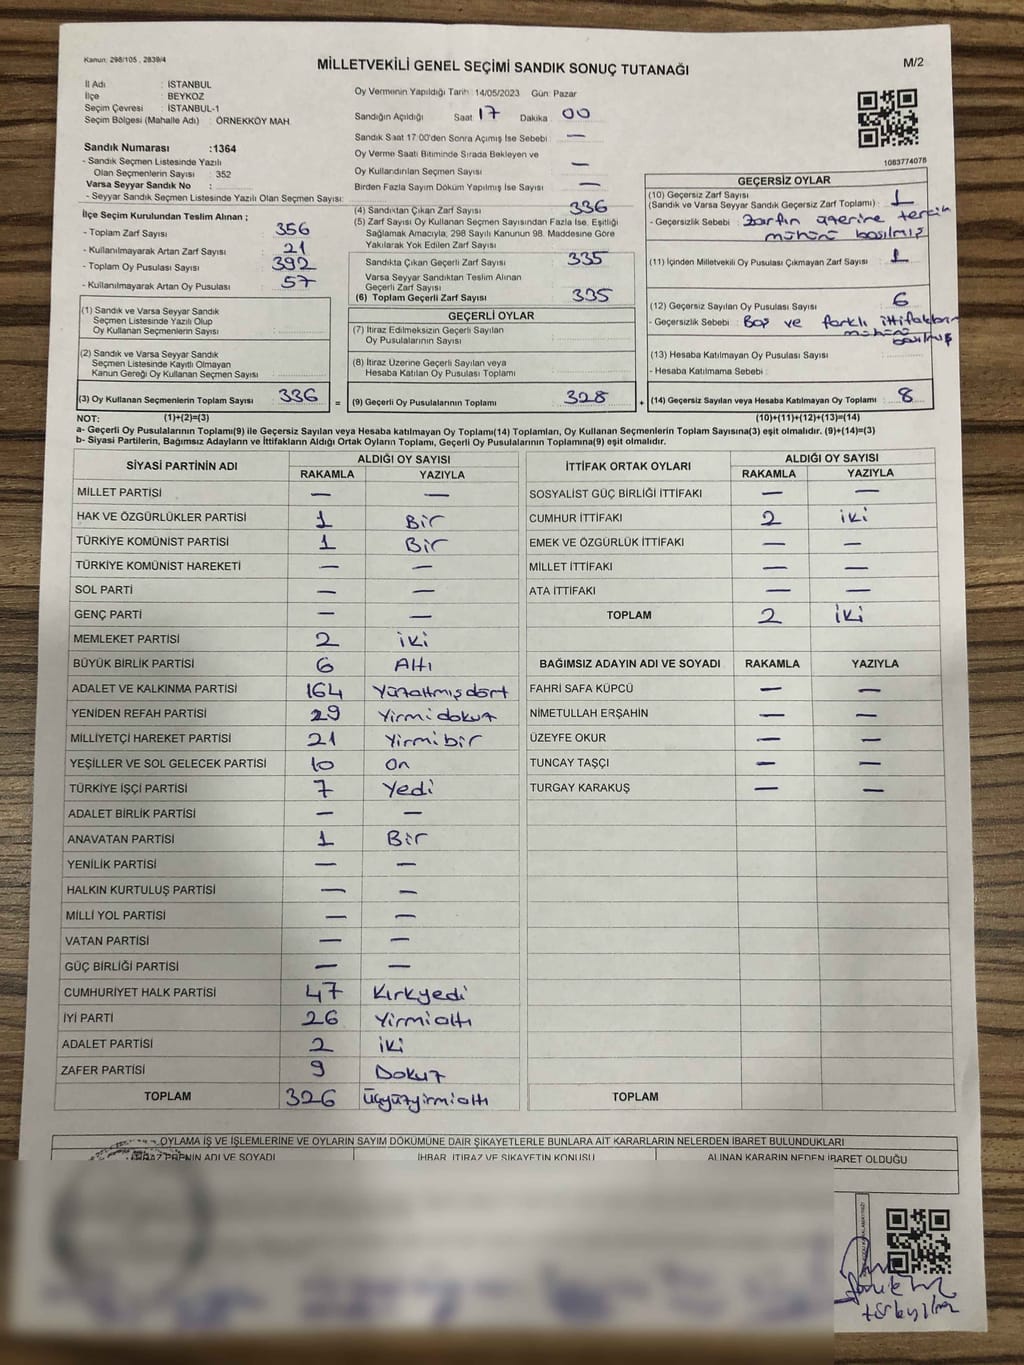 Kanun: 298/105 , 2839/4
MİLLETVEKİLİ GENEL SEÇİMİ SANDIK SONUÇ TUTANAĞI
M/2
İl Adı : İSTANBUL
İlçe : BEYKOZ
Seçim Çevresi : İSTANBUL-1
Seçim Bölgesi (Mahalle Adı) : ÖRNEKKÖY MAH.
Sandık Numarası :1364
- Sandık Seçmen Listesinde Yazılı
Olan Seçmenlerin Sayısı : 352
Varsa Seyyar Sandık No :
- Seyyar Sandık Seçmen Listesinde Yazılı Olan Seçmen Sayısı:
Oy Vermenin Yapıldığı Tarih: 14/05/2023 Gün: Pazar
Sandığın Açıldığı Saat 17 Dakika 00
Sandık Saat 17:00'den Sonra Açımış İse Sebebi —
Oy Verme Saati Bitiminde Sırada Bekleyen ve
Oy Kullandırılan Seçmen Sayısı —
Birden Fazla Sayım Döküm Yapılmış İse Sayısı —
1083774076
İlçe Seçim Kurulundan Teslim Alınan ;
- Toplam Zarf Sayısı : 356
- Kullanılmayarak Artan Zarf Sayısı : 21
- Toplam Oy Pusulası Sayısı : 392
- Kullanılmayarak Artan Oy Pusulası : 57
(1) Sandık ve Varsa Seyyar Sandık
Seçmen Listesinde Yazılı Olup
Oy Kullanan Seçmenlerin Sayısı :
(2) Sandık ve Varsa Seyyar Sandık
Seçmen Listesinde Kayıtlı Olmayan
Kanun Gereği Oy Kullanan Seçmen Sayısı :
(3) Oy Kullanan Seçmenlerin Toplam Sayısı : 336 =
(4) Sandıktan Çıkan Zarf Sayısı : 336
(5) Zarf Sayısı Oy Kullanan Seçmen Sayısından Fazla İse, Eşitliği
Sağlamak Amacıyla, 298 Sayılı Kanunun 98. Maddesine Göre
Yakılarak Yok Edilen Zarf Sayısı :
Sandıkta Çıkan Geçerli Zarf Sayısı : 335
Varsa Seyyar Sandıktan Teslim Alınan
Geçerli Zarf Sayısı :
(6) Toplam Geçerli Zarf Sayısı : 335
GEÇERLİ OYLAR
(7) İtiraz Edilmeksizin Geçerli Sayılan
Oy Pusulalarının Sayısı :
(8) İtiraz Üzerine Geçerli Sayılan veya
Hesaba Katılan Oy Pusulası Toplamı :
(9) Geçerli Oy Pusulalarının Toplamı : 328 +
GEÇERSİZ OYLAR
(10) Geçersiz Zarf Sayısı
(Sandık ve Varsa Seyyar Sandık Geçersiz Zarf Toplamı) : 1
- Geçersizlik Sebebi : Zarfın üzerine tercih
mühürü basılmış
(11) İçinden Milletvekili Oy Pusulası Çıkmayan Zarf Sayısı : 1
(12) Geçersiz Sayılan Oy Pusulası Sayısı : 6
- Geçersizlik Sebebi : Boş ve farklı ittifaklara
mühür basılmış
(13) Hesaba Katılmayan Oy Pusulası Sayısı :
- Hesaba Katılmama Sebebi :
(14) Geçersiz Sayılan veya Hesaba Katılmayan Oy Toplamı : 8
NOT: (1)+(2)=(3) (10)+(11)+(12)+(13)=(14)
a- Geçerli Oy Pusulalarının Toplamı(9) ile Geçersiz Sayılan veya Hesaba katılmayan Oy Toplamı(14) Toplamları, Oy Kullanan Seçmenlerin Toplam Sayısına(3) eşit olmalıdır. (9)+(14)=(3)
b- Siyasi Partilerin, Bağımsız Adayların ve İttifakların Aldığı Ortak Oyların Toplamı, Geçerli Oy Pusulalarının Toplamına(9) eşit olmalıdır.
SİYASİ PARTİNİN ADI ALDIĞI OY SAYISI
RAKAMLA YAZIYLA
MİLLET PARTİSİ — —
HAK VE ÖZGÜRLÜKLER PARTİSİ 1 Bir
TÜRKİYE KOMÜNİST PARTİSİ 1 Bir
TÜRKİYE KOMÜNİST HAREKETİ — —
SOL PARTİ — —
GENÇ PARTİ — —
MEMLEKET PARTİSİ 2 iki
BÜYÜK BİRLİK PARTİSİ 6 Altı
ADALET VE KALKINMA PARTİSİ 164 Yüzaltmışdört
YENİDEN REFAH PARTİSİ 29 Yirmidokuz
MİLLİYETÇİ HAREKET PARTİSİ 21 Yirmibir
YEŞİLLER VE SOL GELECEK PARTİSİ 10 On
TÜRKİYE İŞÇİ PARTİSİ 7 Yedi
ADALET BİRLİK PARTİSİ — —
ANAVATAN PARTİSİ 1 Bir
YENİLİK PARTİSİ — —
HALKIN KURTULUŞ PARTİSİ — —
MİLLİ YOL PARTİSİ — —
VATAN PARTİSİ — —
GÜÇ BİRLİĞİ PARTİSİ — —
CUMHURİYET HALK PARTİSİ 47 Kırkyedi
İYİ PARTİ 26 Yirmialtı
ADALET PARTİSİ 2 iki
ZAFER PARTİSİ 9 Dokuz
TOPLAM 326 Üçyüzyirmialtı
İTTİFAK ORTAK OYLARI ALDIĞI OY SAYISI
RAKAMLA YAZIYLA
SOSYALİST GÜÇ BİRLİĞİ İTTİFAKI — —
CUMHUR İTTİFAKI 2 iki
EMEK VE ÖZGÜRLÜK İTTİFAKI — —
MİLLET İTTİFAKI — —
ATA İTTİFAKI — —
TOPLAM 2 iki
BAĞIMSIZ ADAYIN ADI VE SOYADI RAKAMLA YAZIYLA
FAHRİ SAFA KÜPCÜ — —
NİMETULLAH ERŞAHİN — —
ÜZEYFE OKUR — —
TUNCAY TAŞÇI — —
TURGAY KARAKUŞ — —
TOPLAM
OYLAMA İŞ VE İŞLEMLERİNE VE OYLARIN SAYIM DÖKÜMÜNE DAİR ŞİKAYETLERLE BUNLARA AİT KARARLARIN NELERDEN İBARET BULUNDUKLARI
ADI VE SOYADI İHBAR, İTİRAZ VE ŞİKAYETİN KONUSU ALINAN KARARIN NEDEN İBARET OLDUĞU